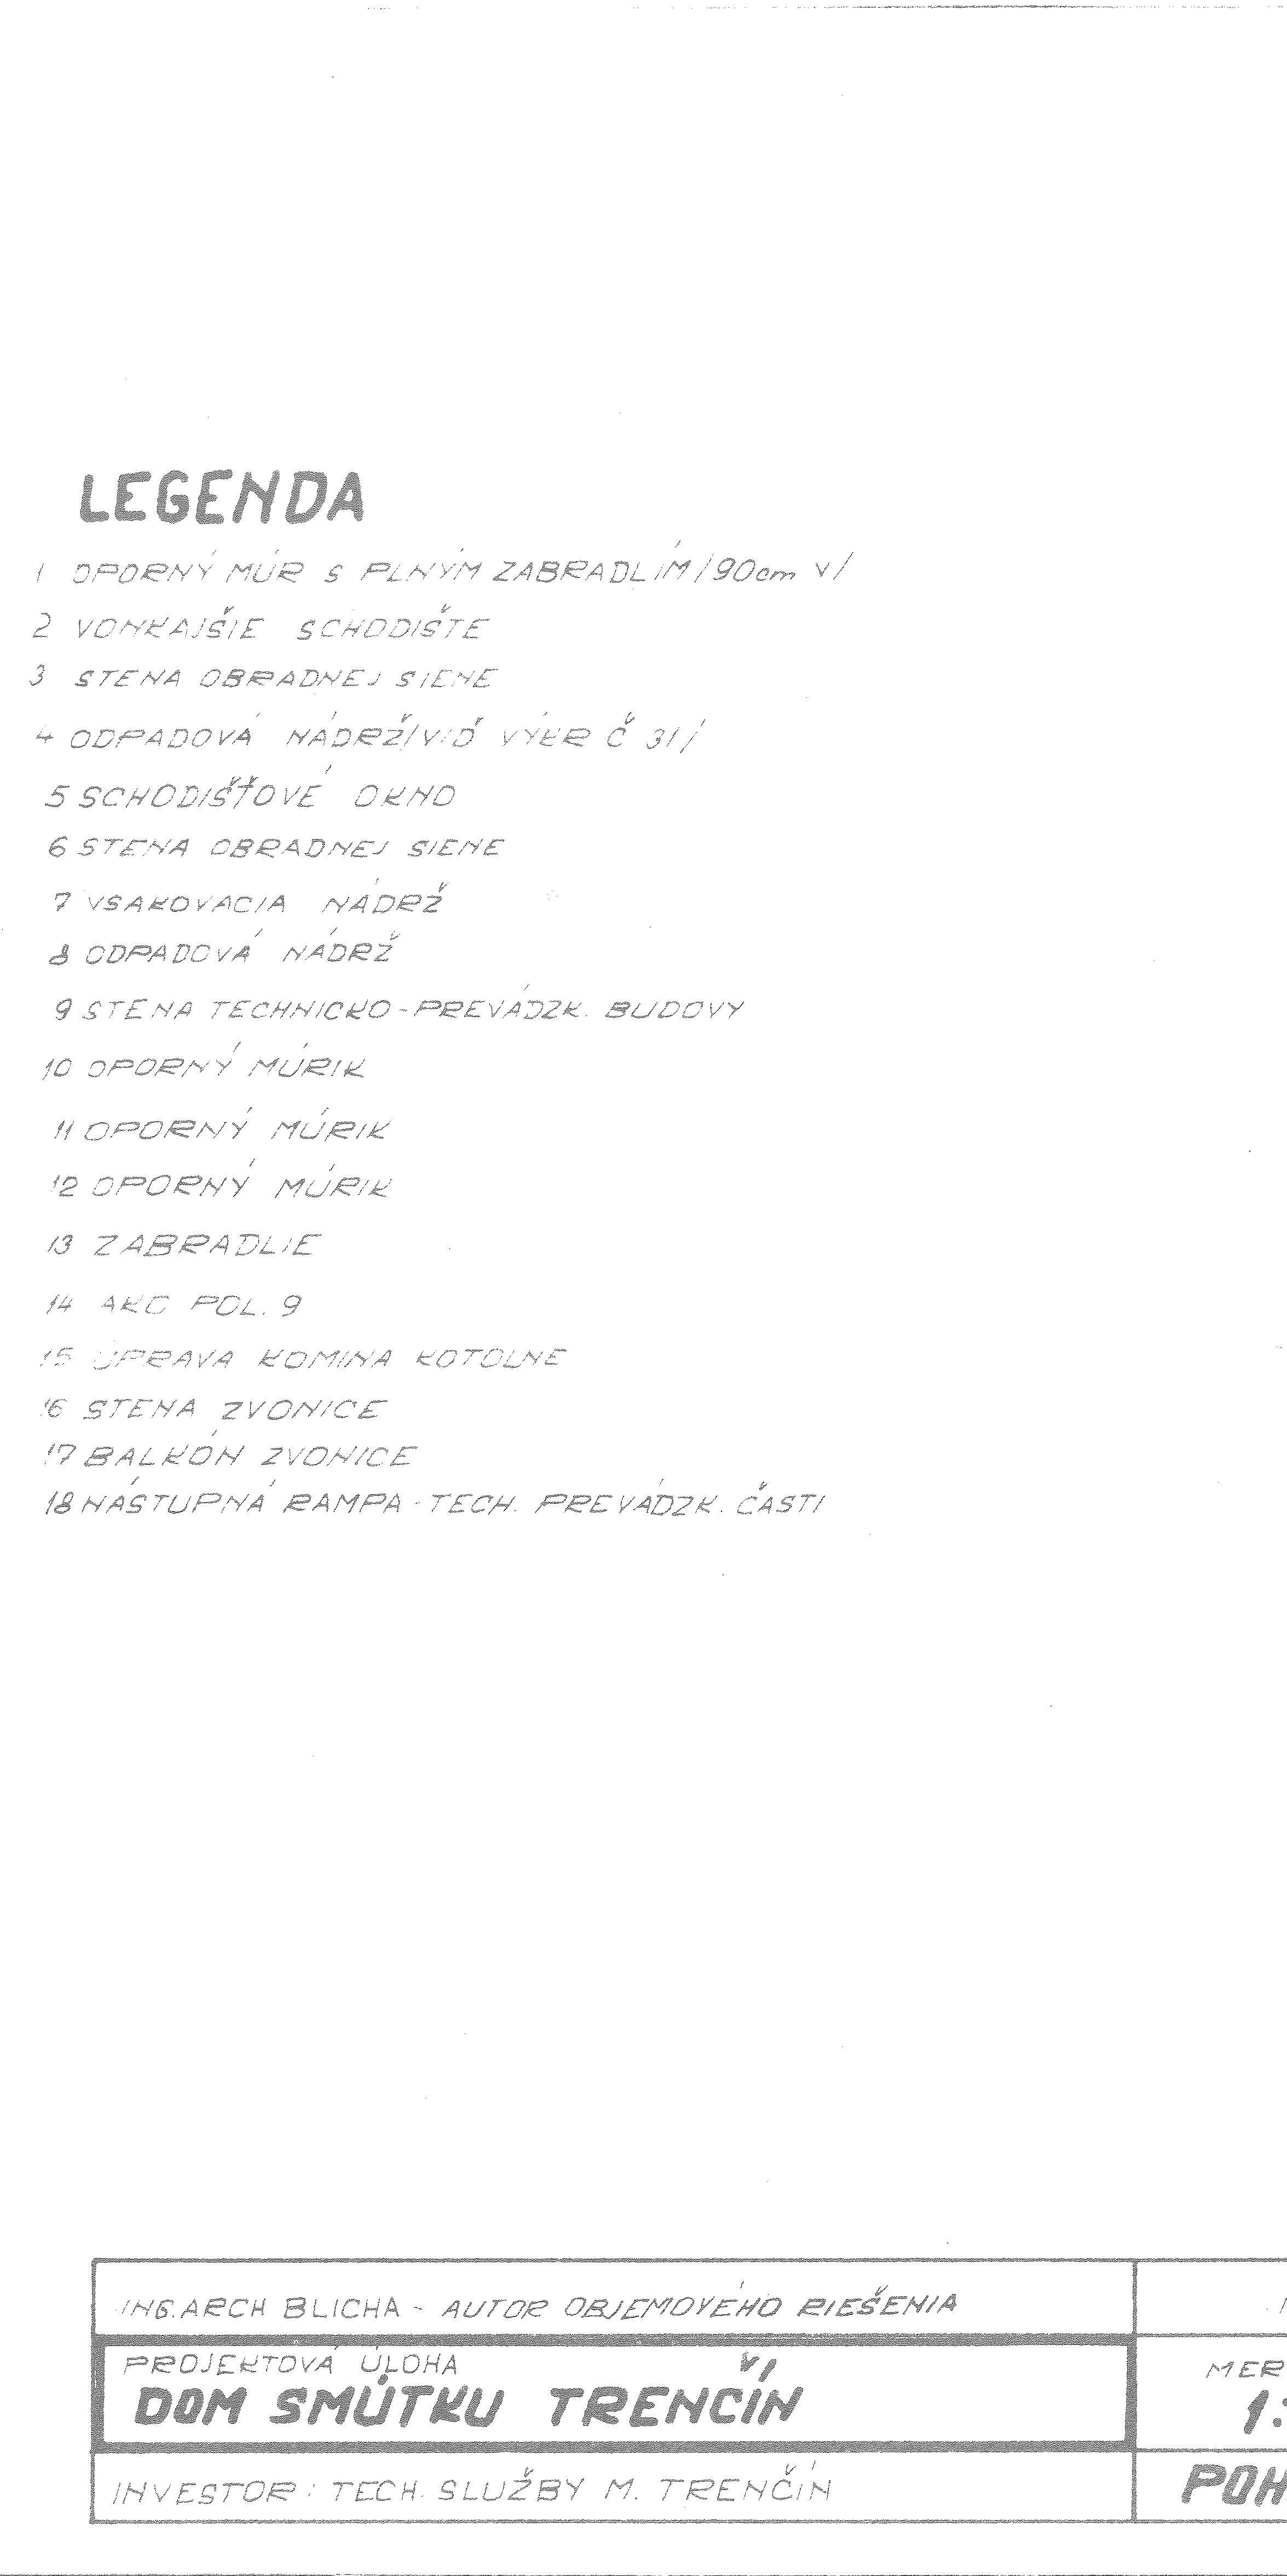 LEGENDA
1 OPORNÝ MÚR S PLNÝM ZABRADLÍM /90cm V/
2 VONKAJŠIE SCHODIŠTE
3 STENA OBRADNEJ SIENE
4 ODPADOVÁ NÁDRŽ/VIĎ VÝKR Č 31/
5 SCHODIŠŤOVÉ OKNO
6 STENA OBRADNEJ SIENE
7 VSAKOVACIA NÁDRŽ
8 ODPADOVÁ NÁDRŽ
9 STENA TECHNICKO-PREVÁDZK. BUDOVY
10 OPORNÝ MÚRIK
11 OPORNÝ MÚRIK
12 OPORNÝ MÚRIK
13 ZABRADLIE
14 AKO POL. 9
15 ÚPRAVA KOMINA KOTOLNE
16 STENA ZVONICE
17 BALKÓN ZVONICE
18 NÁSTUPNÁ RAMPA - TECH. PREVÁDZK. ČASTI
ING.ARCH BLICHA - AUTOR OBJEMOVÉHO RIEŠENIA
PROJEKTOVÁ ÚLOHA
MER
DOM SMÚTKU TRENČÍN
1:
INVESTOR: TECH. SLUŽBY M. TRENČÍN
POH